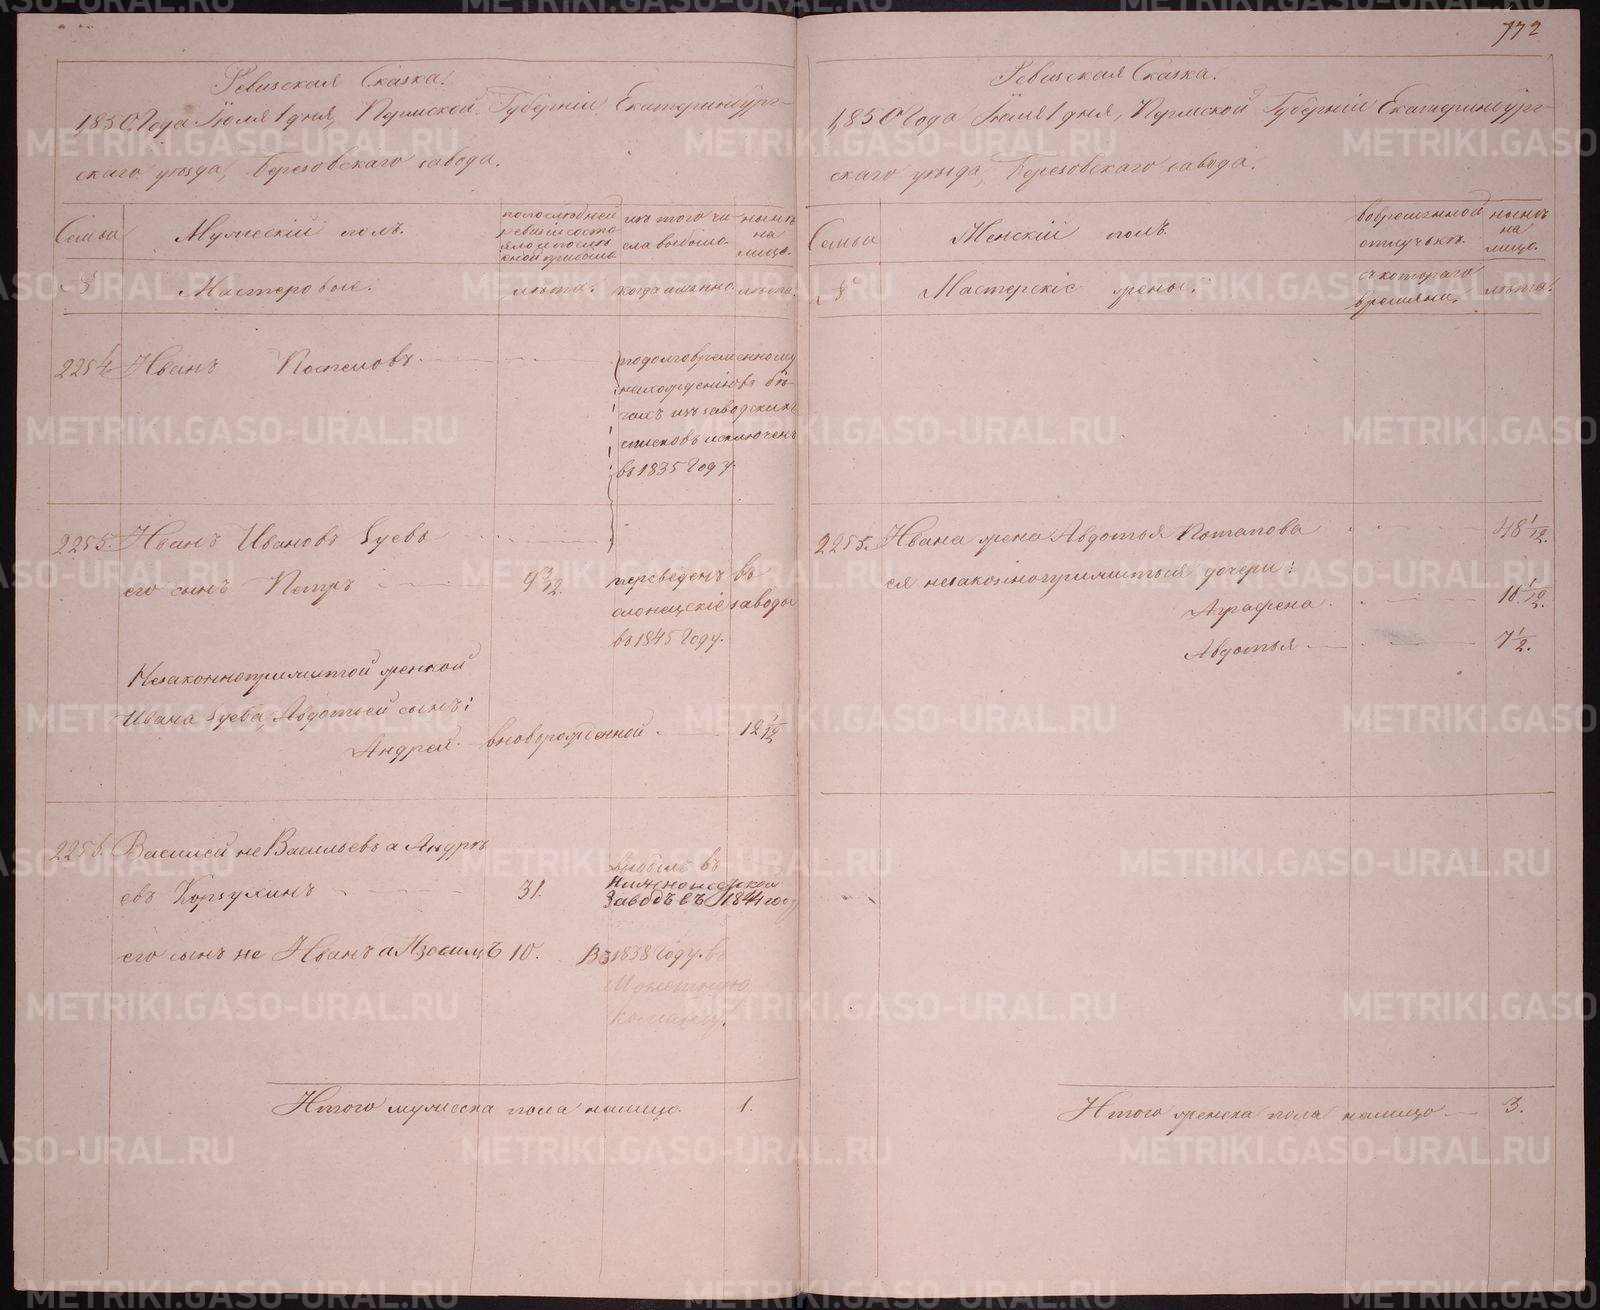 772
Ревизская Сказка.
1850 Года Іюля 1 дня, Пермской Губерніи Екатеринбург-
скаго уѣзда, Березовскаго завода.
Семьи
Мужескій полъ.
по послѣдней ревизіи состояло и послѣ
изъ того числа выбыло.
нынѣ на лицо.
№
Мастеровые.
лѣта.
когда именно.
лѣта.
2254.
Иванъ
по долговременному
нахожденію въ бѣ-
гахъ изъ заводскихъ
списковъ исключенъ
въ 1835 Году.
2255. Иванъ Ивановъ Зуевъ
его сынъ Петръ
9 3/12.
переведенъ въ
олонецкіе заводы
въ 1845 Году.
Незаконноприжитой женкой
Ивана Зуева, Авдотьей сынъ:
Андрей вноворожденной 12 1/12
2256. Василей не Васильевъ а Андре
евъ Корзухинъ
31.
выбылъ въ
Нижнеисетской
Заводъ въ 1841 году
его сынъ не Иванъ а Изосимъ 10.
Въ 1838 Году. въ
Монетную
команду.
Итого мужеска пола налицо. 1.
Ревизская Сказка.
1850 Года Іюля 1 дня, Пермской Губерніи Екатеринбург-
скаго уѣзда, Березовскаго завода.
Семьи
Женскій полъ.
во временной отлучкѣ.
нынѣ на лицо.
№
Мастерскіе жены.
съ котораго времяни.
лѣта.
2255. Ивана жена Авдотья Потапова 48 1/12.
ея незаконноприжитыя дочери:
Аграфена
Авдотья 7 1/2.
Итого женска пола налицо 3.
METRIKI.GASO-URAL.RU